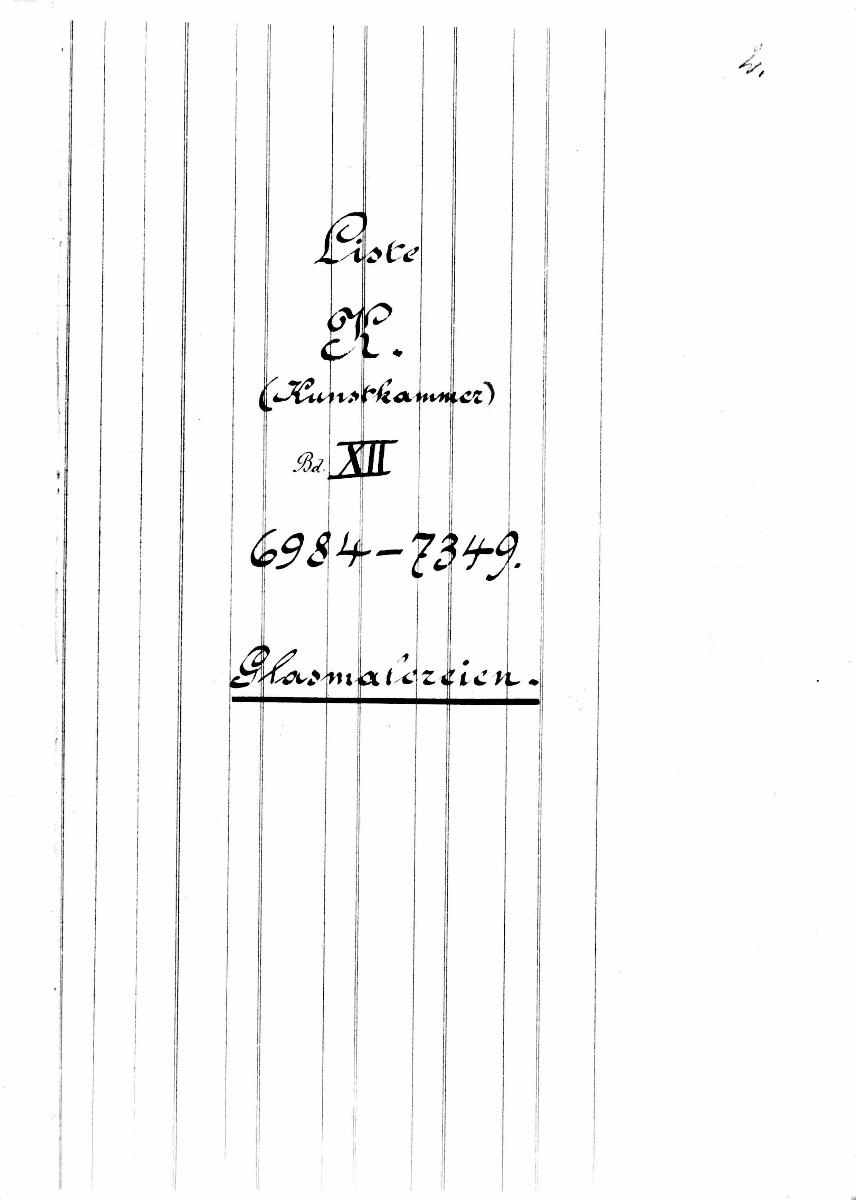 2.
Liste
K.
(Kunstkammer)
Bd. XII
6984-7349.
Glasmalereien.